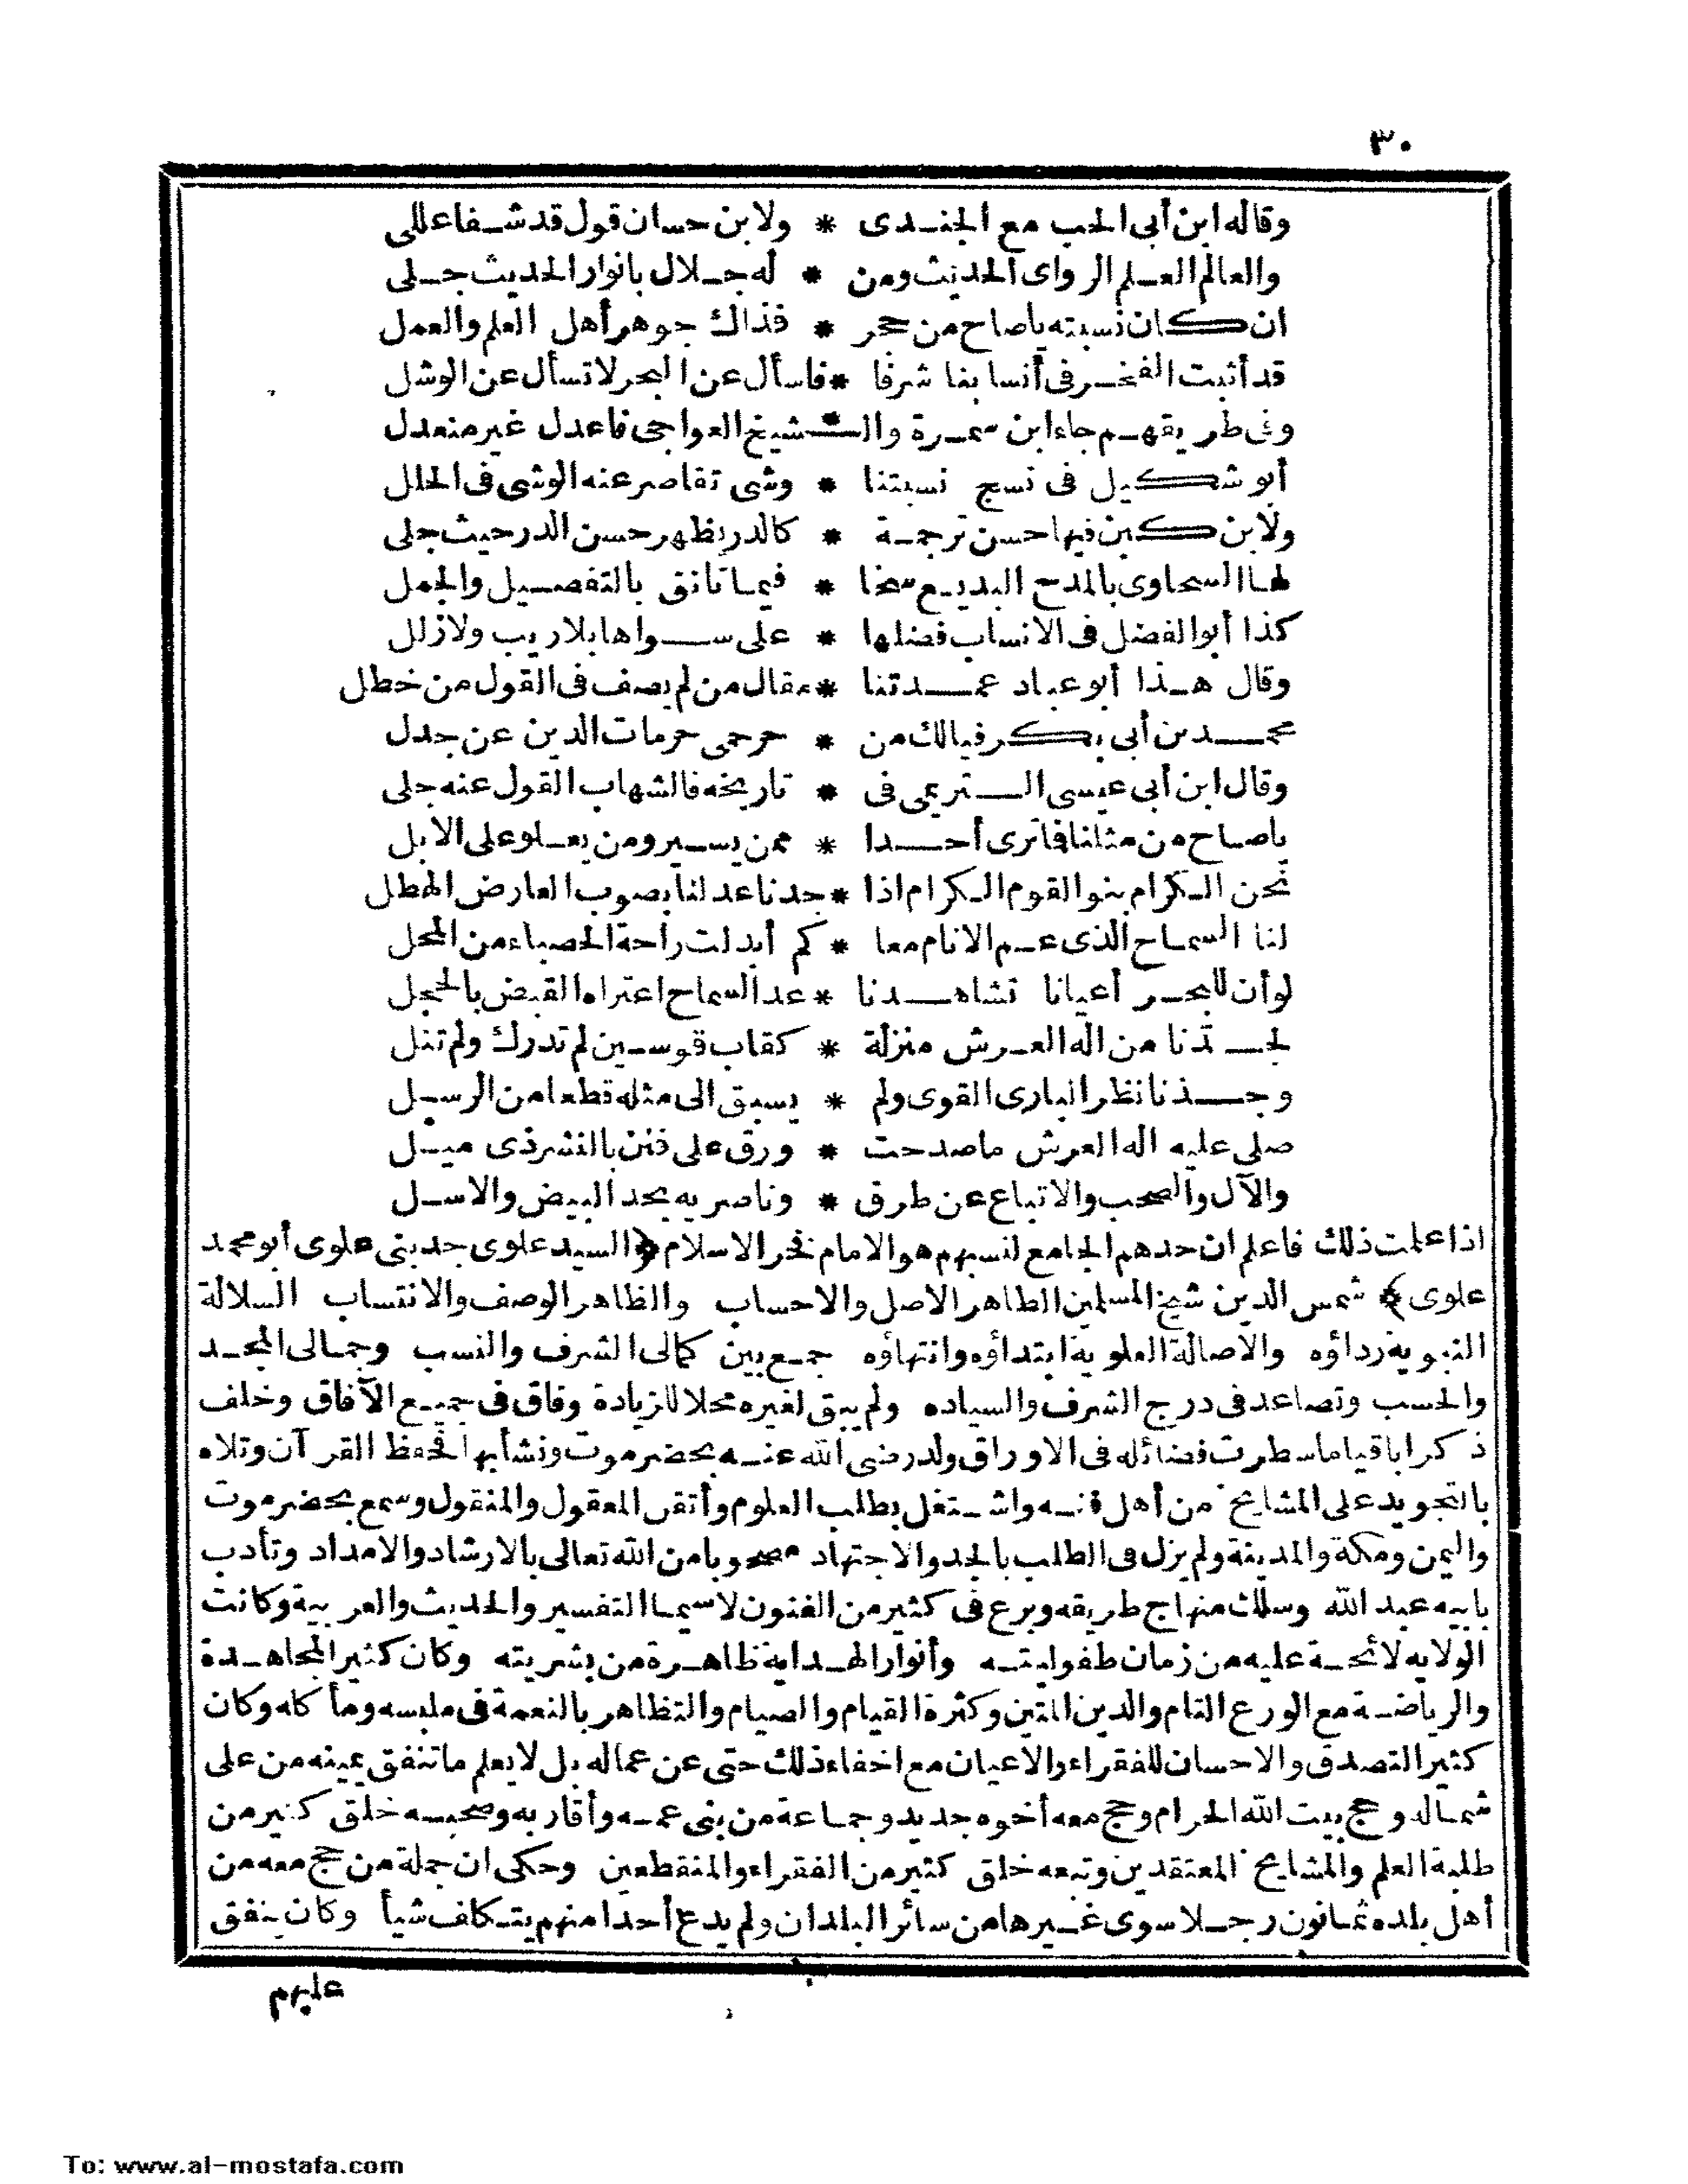 ٣٠
وقاله ابن أبى الحب مع الجندى * ولابن حسان قول قد شفا عللى
والعالم العلم الرواى الحديث ومن * له جلال بانوار الحديث جلى
ان كان نسبته ياصاح من حجر * فذاك جوهر أهل العلم والعمل
قد أثبت الفخر فى أنسابنا شرفا * فاسأل عن البحر لا تسأل عن الوشل
وفى طريقهم جاء ابن سمرة والشيخ العواجى فاعدل غير منعدل
أبو شكيل فى نسج نسبتنا * وشى تقاصر عنه الوشى فى الحلل
ولابن كبن فيها حسن ترجمة * كالدر يظهر حسن الدر حيث جلى
لها السخاوى بالمدح البديع سخا * فيما تانق بالتفصيل والجمل
كذا أبو الفضل فى الانساب فضلها * على سواها بلا ريب ولا زلل
وقال هذا أبو عباد عمدتنا * مقال من لم يصف فى القول من خطل
محمد بن أبى بكر فيالك من * حرحمى حرمات الدين عن جدل
وقال ابن أبى عيسى التريمى فى * تاريخه فالشهاب القول عنه جلى
ياصاح من مثلنا فاترى أحدا * ممن يسير ومن يعلو على الابل
نحن الكرام بنو القوم الكرام اذا * جدنا عد لنا بصوب العارض الهطل
لنا السماح الذى عم الانام معا * كم أبدلت راحة الخصباء من المحل
لو أن للبحر أعيانا تشاهدنا * عد السماح اعتراه القبض بالخجل
لجدنا من اله العرش منزلة * كقاب قوسين لم تدرك ولم تنل
وجدنا نظر البارى القوى ولم * يسبق الى مثله قطعا من الرسل
صلى عليه اله العرش ما صدحت * ورق على فنن بالنشر ذى ميل
والآل والصحب والاتباع عن طرق * وناصريه بحد البيض والاسل
اذا علمت ذلك فاعلم ان جدهم الجامع لنسبهم هو الامام فخر الاسلام ﴿السيد علوى جد بنى علوى أبو محمد
علوى﴾ شمس الدين شيخ المسلمين الطاهر الاصل والاحساب والظاهر الوصف والانتساب السلالة
النبوية رداؤه والاصالة العلوية ابتداؤه وانتهاؤه جمع بين كمالى الشرف والنسب وجمالى المجد
والحسب وتصاعد فى درج الشرف والسياده ولم يبق لغيره محلا للزيادة وفاق فى جميع الآفاق وخلف
ذكرا باقيا ما سطرت فضائله فى الاوراق ولد رضى الله عنه بحضرموت ونشأ بها فحفظ القرآن وتلاه
بالتجويد على المشايخ من أهل فنه واشتغل بطلب العلوم وأتقن المعقول والمنقول وسمع بحضرموت
واليمن ومكة والمدينة ولم يزل فى الطلب بالجد والاجتهاد مصحوبا من الله تعالى بالارشاد والامداد وتأدب
بابيه عبد الله وسلك منهاج طريقه وبرع فى كثير من الفنون لاسيما التفسير والحديث والعربية وكانت
الولايه لائحة عليه من زمان طفوليته وأنوار الهداية ظاهرة من بشريته وكان كثير المجاهدة
والرياضة مع الورع التام والدين المتين وكثرة القيام والصيام والتظاهر بالنعمة فى ملبسه ومأكله وكان
كثير التصدق والاحسان للفقراء والاعيان مع اخفاء ذلك حتى عن عماله بل لا يعلم ما تنفق يمينه من على
شماله وحج بيت الله الحرام وحج معه أخوه جديد وجماعة من بنى عمه وأقاربه وصحبه خلق كثير من
طلبة العلم والمشايخ المعتقدين وتبعه خلق كثير من الفقراء والمنقطعين وحكى ان جملة من حج معه من
أهل بلده ثمانون رجلا سوى غيرها من سائر البلدان ولم يدع أحدا منهم يتكلف شيأ وكان ينفق
عليهم
To: www.al-mostafa.com